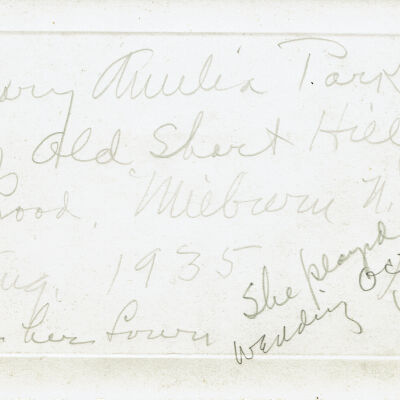 ary Amelia Park
Old Short Hill
ood, Milburn N.
Aug, 1935
her town
She played
wedding Oct